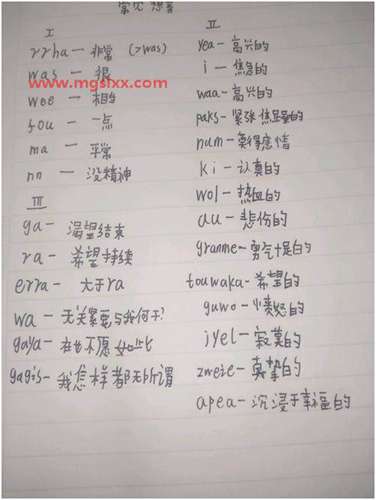 常见想音
I
rrha — 非常 (>was)
was — 很
www.mgslxx.com
wee — 相当
fou — 一点
ma — 平常
nn — 没精神
III
ga — 渴望结束
ra — 希望持续
erra — 大于ra
wa — 无关紧要与我何干?
gaya — 在也不愿如此
gagis — 我怎样都无所谓
II
yea — 高兴的
i — 焦急的
waa — 高兴的
paks — 紧张焦虑的
num — 莫得感情
ki — 认真的
wol — 热血的
au — 悲伤的
granme — 勇气十足的
touwaka — 希望的
guwo — 愤怒的
jyel — 寂寞的
zweie — 真挚的
apea — 沉浸于幸福的